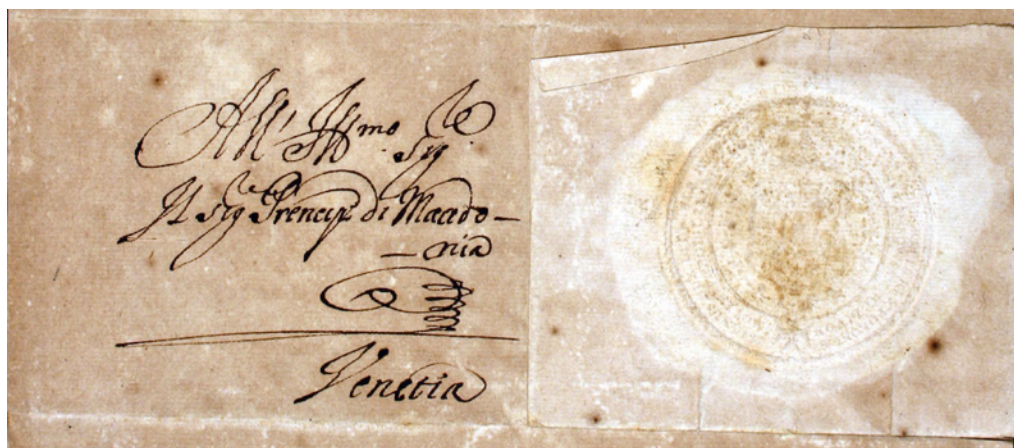 All' Ill.mo Sig.re
Il Sig.re Prencipe di Macedo—
—nia
Venetia